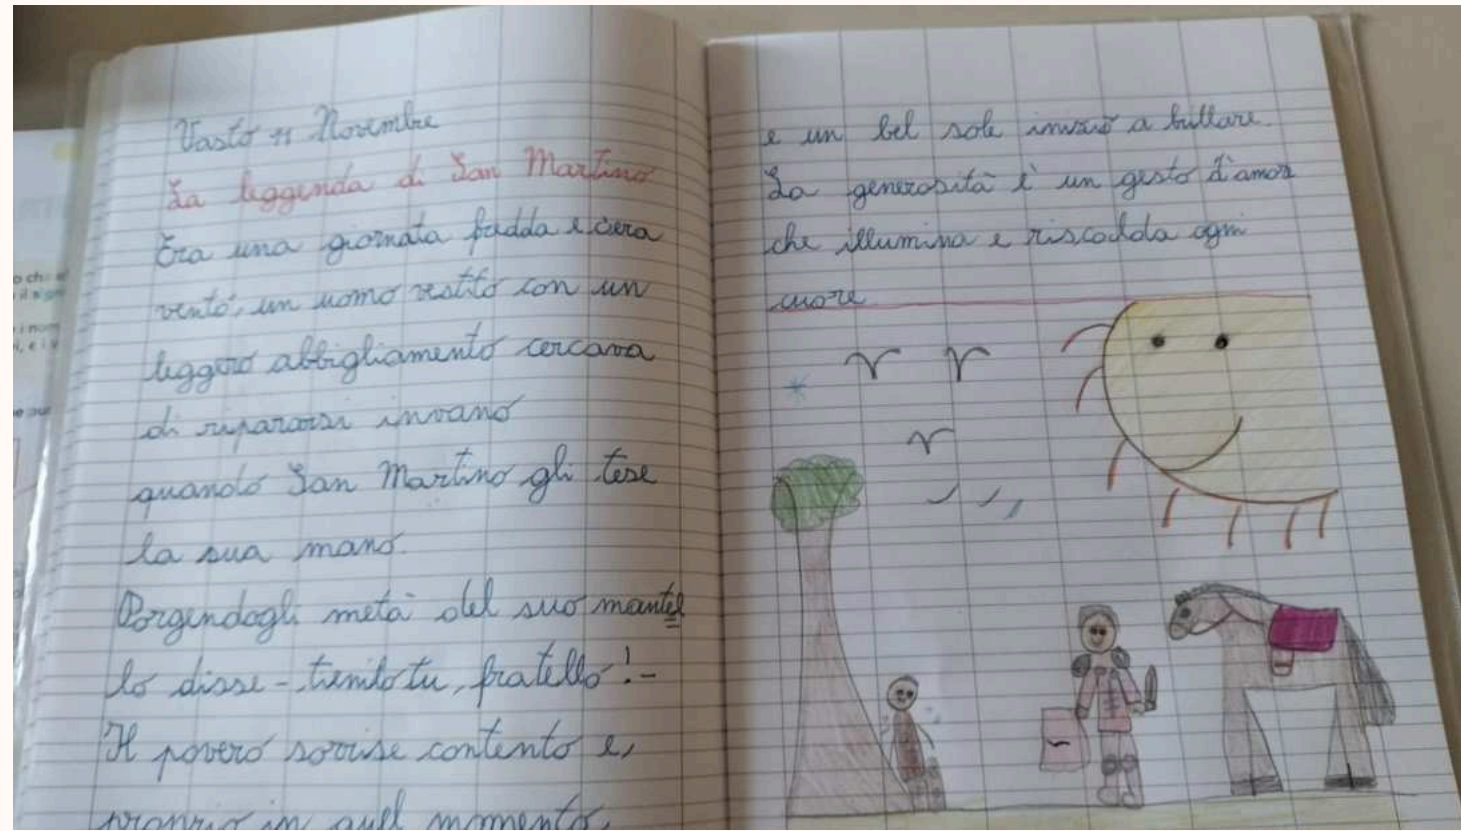 Vasto 11 Novembre
La leggenda di San Martino
Era una giornata fredda e c'era
vento, un uomo vestito con un
leggero abbigliamento cercava
di ripararsi invano
quando San Martino gli tese
la sua mano.
Porgendogli metà del suo mantel
lo disse - tienilo tu, fratello! -
Il povero sorrise contento e,
proprio in quel momento,
e un bel sole iniziò a brillare.
La generosità è un gesto d'amor
che illumina e riscalda ogni
cuore